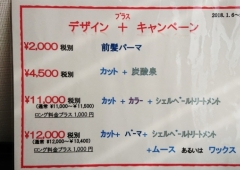 プラス
デザイン + キャンペーン
2018.1.6~
¥2,000 税別 前髪パーマ
¥4,500 税別 カット + 炭酸泉
¥11,000 税別 カット + カラー + シェルペールトリートメント
(通常 ¥11,000~¥11,500)
ロング料金プラス 1,000円
¥12,000 税別 カット + パーマ + シェルペールトリートメント
(通常 ¥12,000~¥13,400)
ロング料金プラス 1,000円
+ムース あるいは ワックス